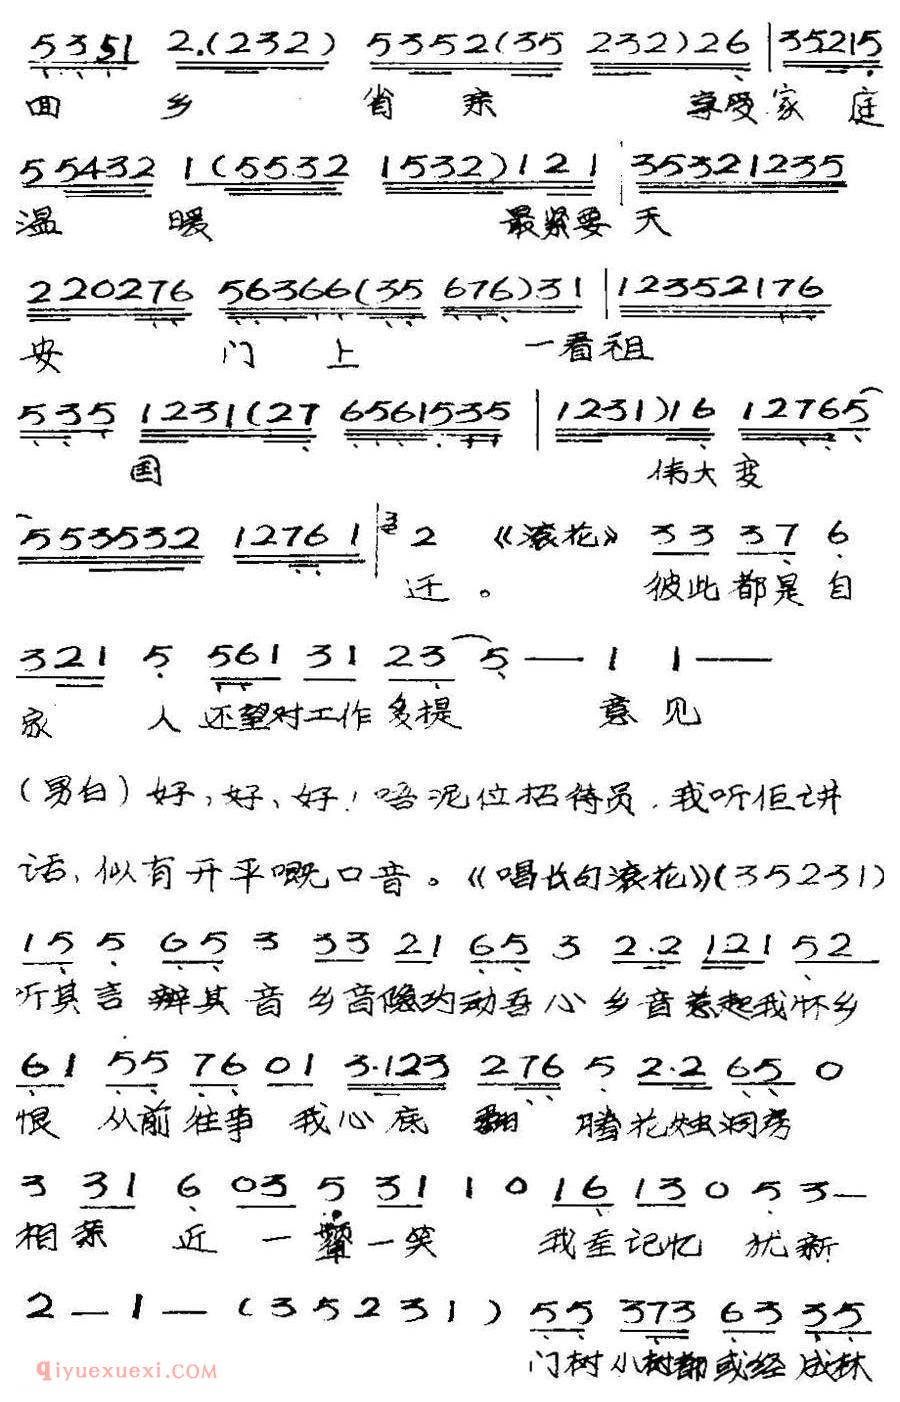 5351 2.(232) 5352(35 232)26 | 35215
回 乡 省 亲 享受家 庭
55432 1(5532 1532)121 | 35321235
温 暖 最紧要 天
220276 56366(35 676)31 | 12352176
安 门 上 一看祖
535 1231(27 6561535 | 1231)16 12765
国 伟大变
553532 12761 | 3 2 《滚花》 33 37 6
迁。 彼此都是自
321 5 561 31 23 5— 1 1——
家 人 还望对工作 多提 意 见
(男白)好,好,好!唔泥位招待员,我听佢讲
话,似有开平嘅口音。《唱长句滚花》(35231)
15 5 65 3 33 21 65 3 2·2 121 52
听其言 辨其 音 乡音隐约动吾心 乡音惹起我怀乡
61 55 76 01 3·123 276 5 2·2 65 0
恨 从前往事 我心底 翻 腾花烛洞房
3 31 6 03 5 31 1 0 16 13 0 5 3—
相亲 近 一颦一笑 我至记忆 犹新
2—1—(35231) 55 373 63 35
门树小树都或经 成林
qiyuexuexi.COM